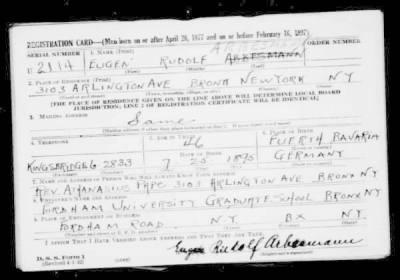 REGISTRATION CARD—(Men born on or after April 28, 1877 and on or before February 16, 1897)
ARBESMANN
SERIAL NUMBER 1. NAME (Print) ORDER NUMBER
U 2114 EUGEN RUDOLF ARBESMANN
2. PLACE OF RESIDENCE (Print)
3103 ARLINGTON AVE BRONX NEW YORK NY
[THE PLACE OF RESIDENCE GIVEN ON THE LINE ABOVE WILL DETERMINE LOCAL BOARD
JURISDICTION; LINE 2 OF REGISTRATION CERTIFICATE WILL BE IDENTICAL]
3. MAILING ADDRESS
Same
4. TELEPHONE 5. AGE IN YEARS 6. PLACE OF BIRTH
46 FUERTH BAVARIA
DATE OF BIRTH
KINGSBRIDGE 6 2833 7 25 1895 GERMANY
7. NAME AND ADDRESS OF PERSON WHO WILL ALWAYS KNOW YOUR ADDRESS
REV. ATHANASIUS PAPE 3103 ARLINGTON AVE BRONX NY
8. EMPLOYER'S NAME AND ADDRESS
FORDHAM UNIVERSITY GRADUATE SCHOOL BRONX NY
9. PLACE OF EMPLOYMENT OR BUSINESS
FORDHAM ROAD N.Y. BX N.Y.
I AFFIRM THAT I HAVE VERIFIED ABOVE ANSWERS AND THAT THEY ARE TRUE.
D. S. S. Form 1
(Revised 4-1-42) (over) Eugen Rudolf Arbesmann